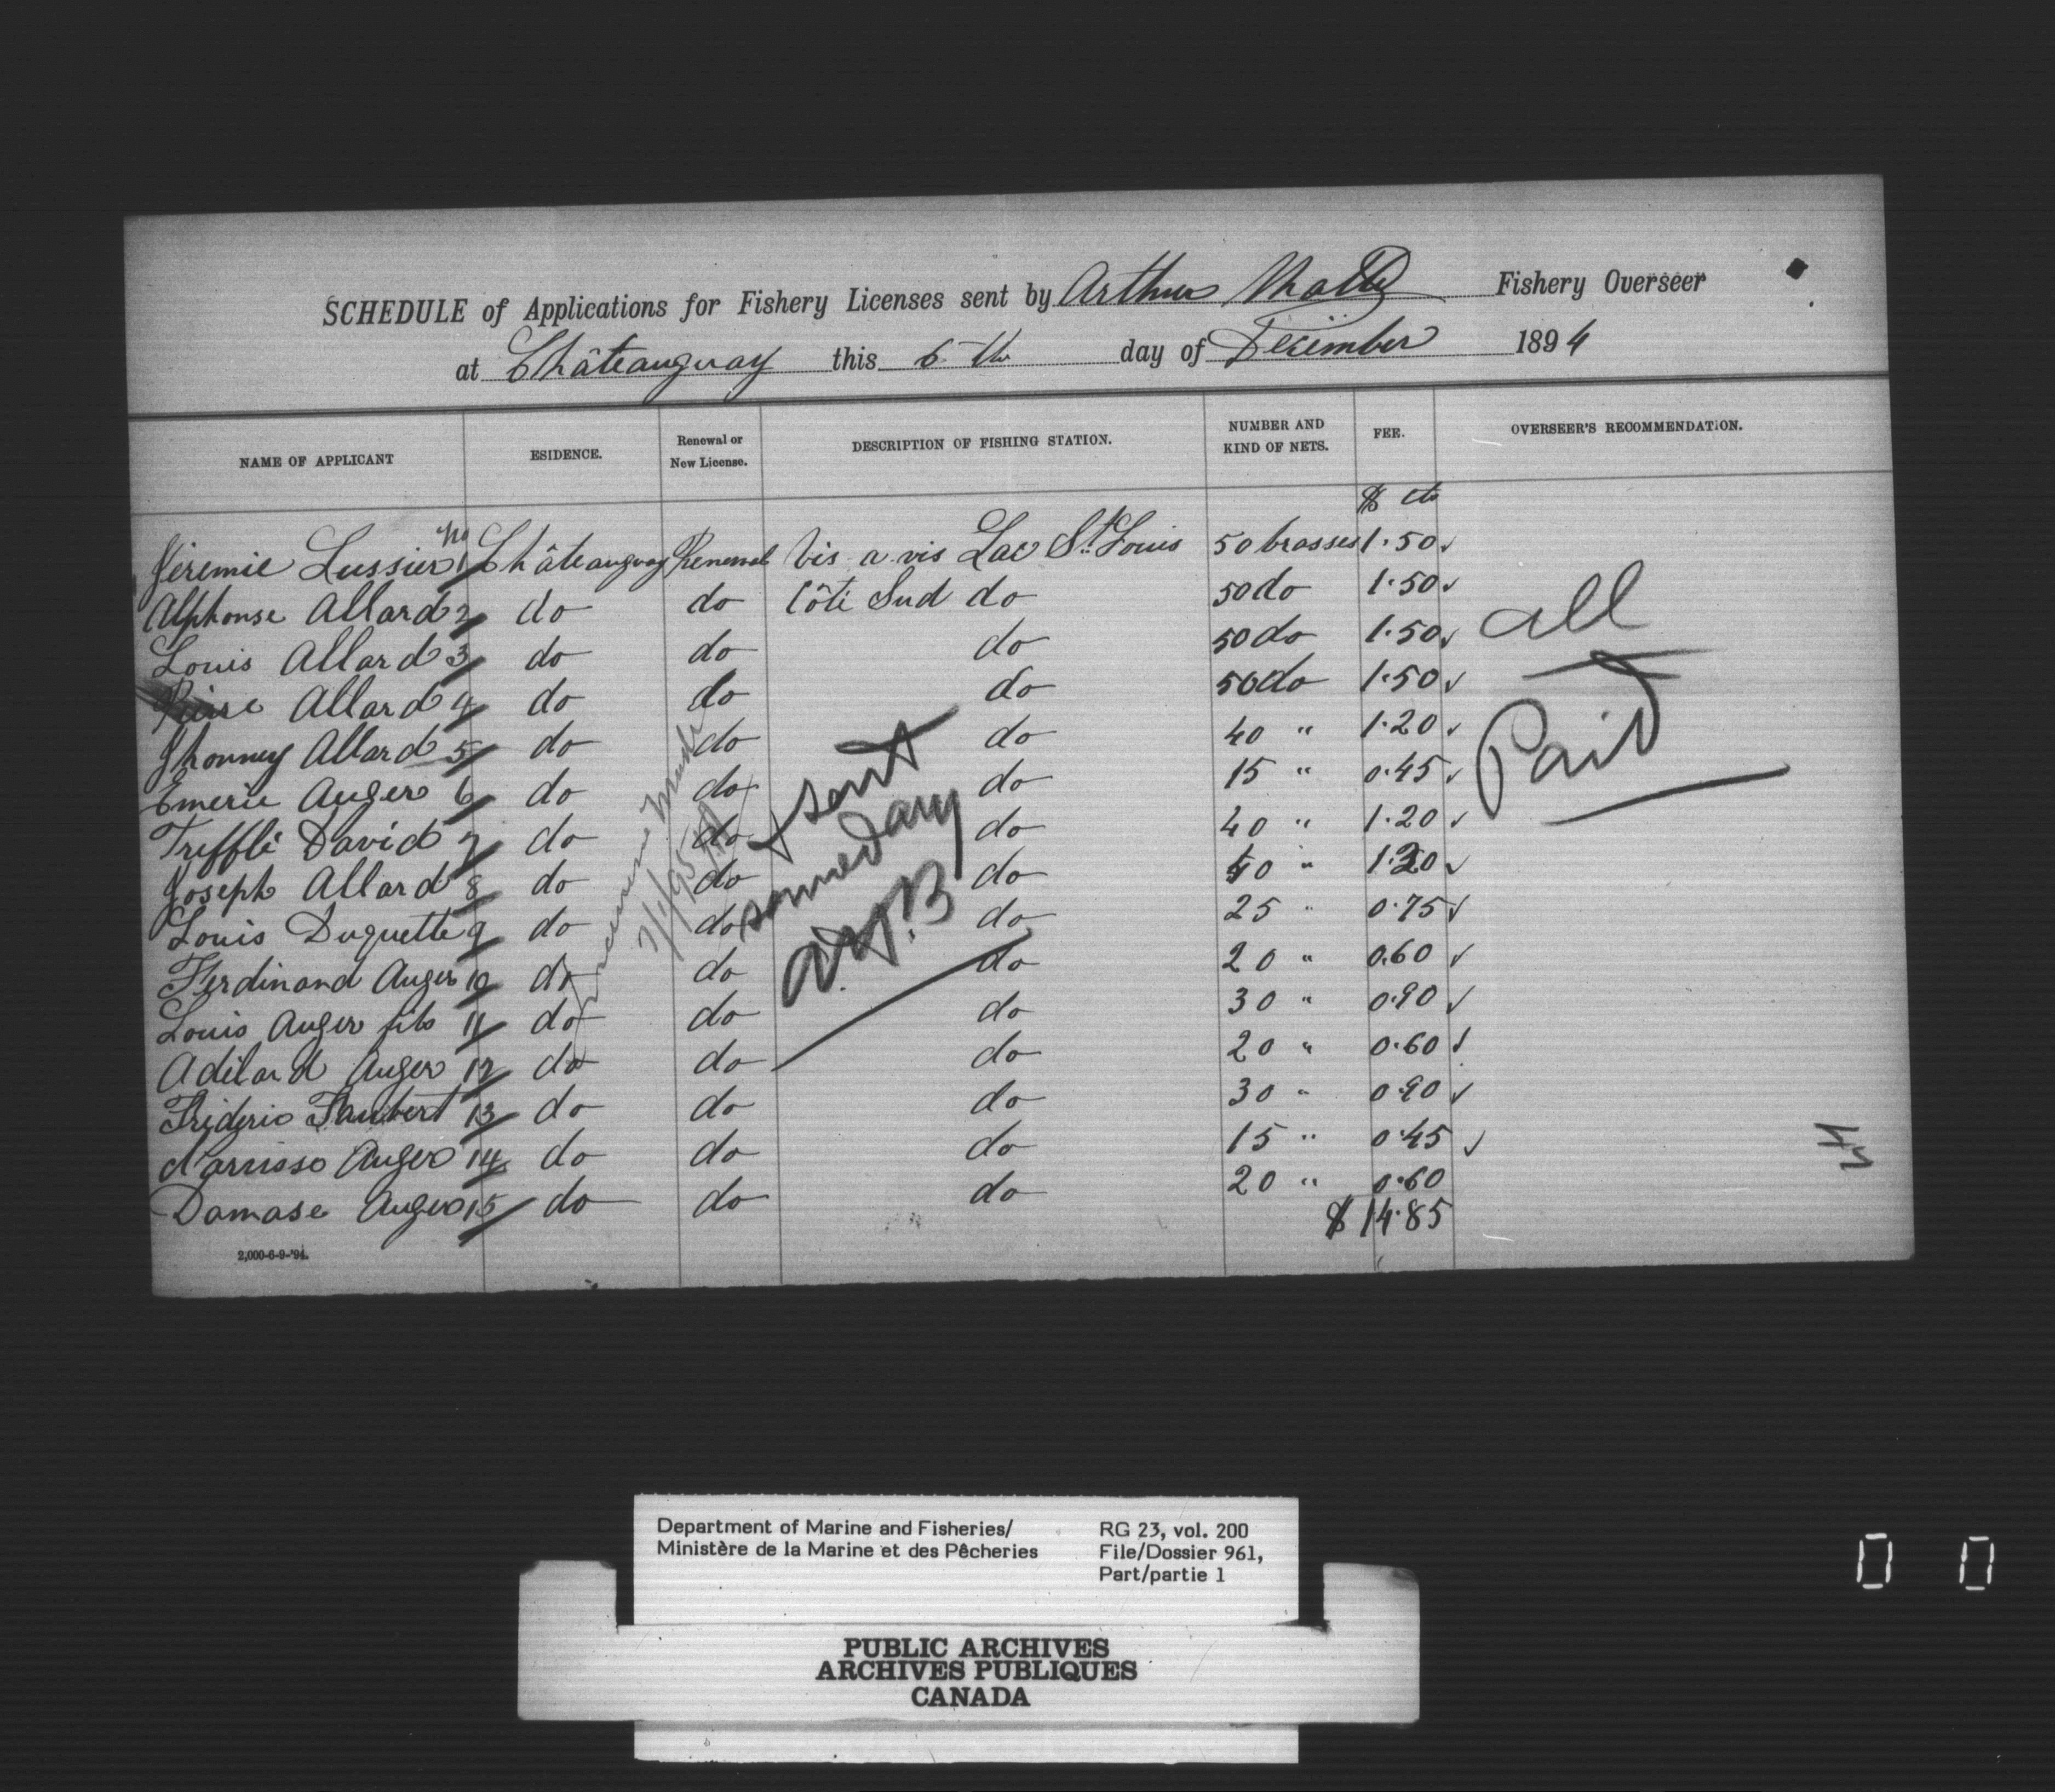 SCHEDULE of Applications for Fishery Licenses sent by Arthur Fishery Overseer
at Châteauguay this 6 th day of December 1894
NAME OF APPLICANT ESIDENCE. Renewal or New License. DESCRIPTION OF FISHING STATION. NUMBER AND KIND OF NETS. FEE. OVERSEER'S RECOMMENDATION.
$ cts
Jéremie Lussier No 1 Châteauguay Renewal Vis a vis Lac St. Louis 50 brasses 1.50
Alphonse Allard 2 do do Côté Sud do 50 do 1.50
Louis Allard 3 do do do 50 do 1.50
Pierre Allard 4 do do do 50 do 1.50
Jhonney Allard 5 do do do 40 " 1.20
Emerie Auger 6 do do do 15 " 0.45
Trefflé David 7 do do do 40 " 1.20
Joseph Allard 8 do do do 40 " 1.20
Louis Duquette 9 do do do 25 " 0.75
Ferdinand Auger 10 do do do 20 " 0.60
Louis Auger fils 11 do do do 30 " 0.90
Adélard Auger 12 do do do 20 " 0.60
Fréderic Faubert 13 do do do 30 " 0.90
Narcisse Auger 14 do do do 15 " 0.45
Damase Auger 15 do do do 20 " 0.60
$ 14.85
all
Paid
7/1/95
sent
same day
2,000-6-9-'94.
Department of Marine and Fisheries/
Ministère de la Marine et des Pêcheries
RG 23, vol. 200
File/Dossier 961,
Part/partie 1
PUBLIC ARCHIVES
ARCHIVES PUBLIQUES
CANADA
0 0